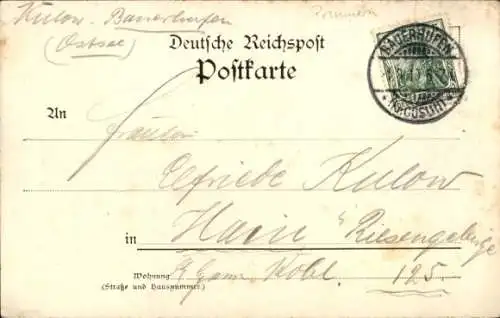 Kulow - Bauerhufen
(Ostsee)
Pommern
BAUERHUFEN
* (KR. CÖSLIN) *
Deutsche Reichspost
Postkarte
An
Fräulein
Elfriede Kulow
in Hain "Riesengebirge
Wohnung
(Straße und Hausnummer)
Kohl. 125.